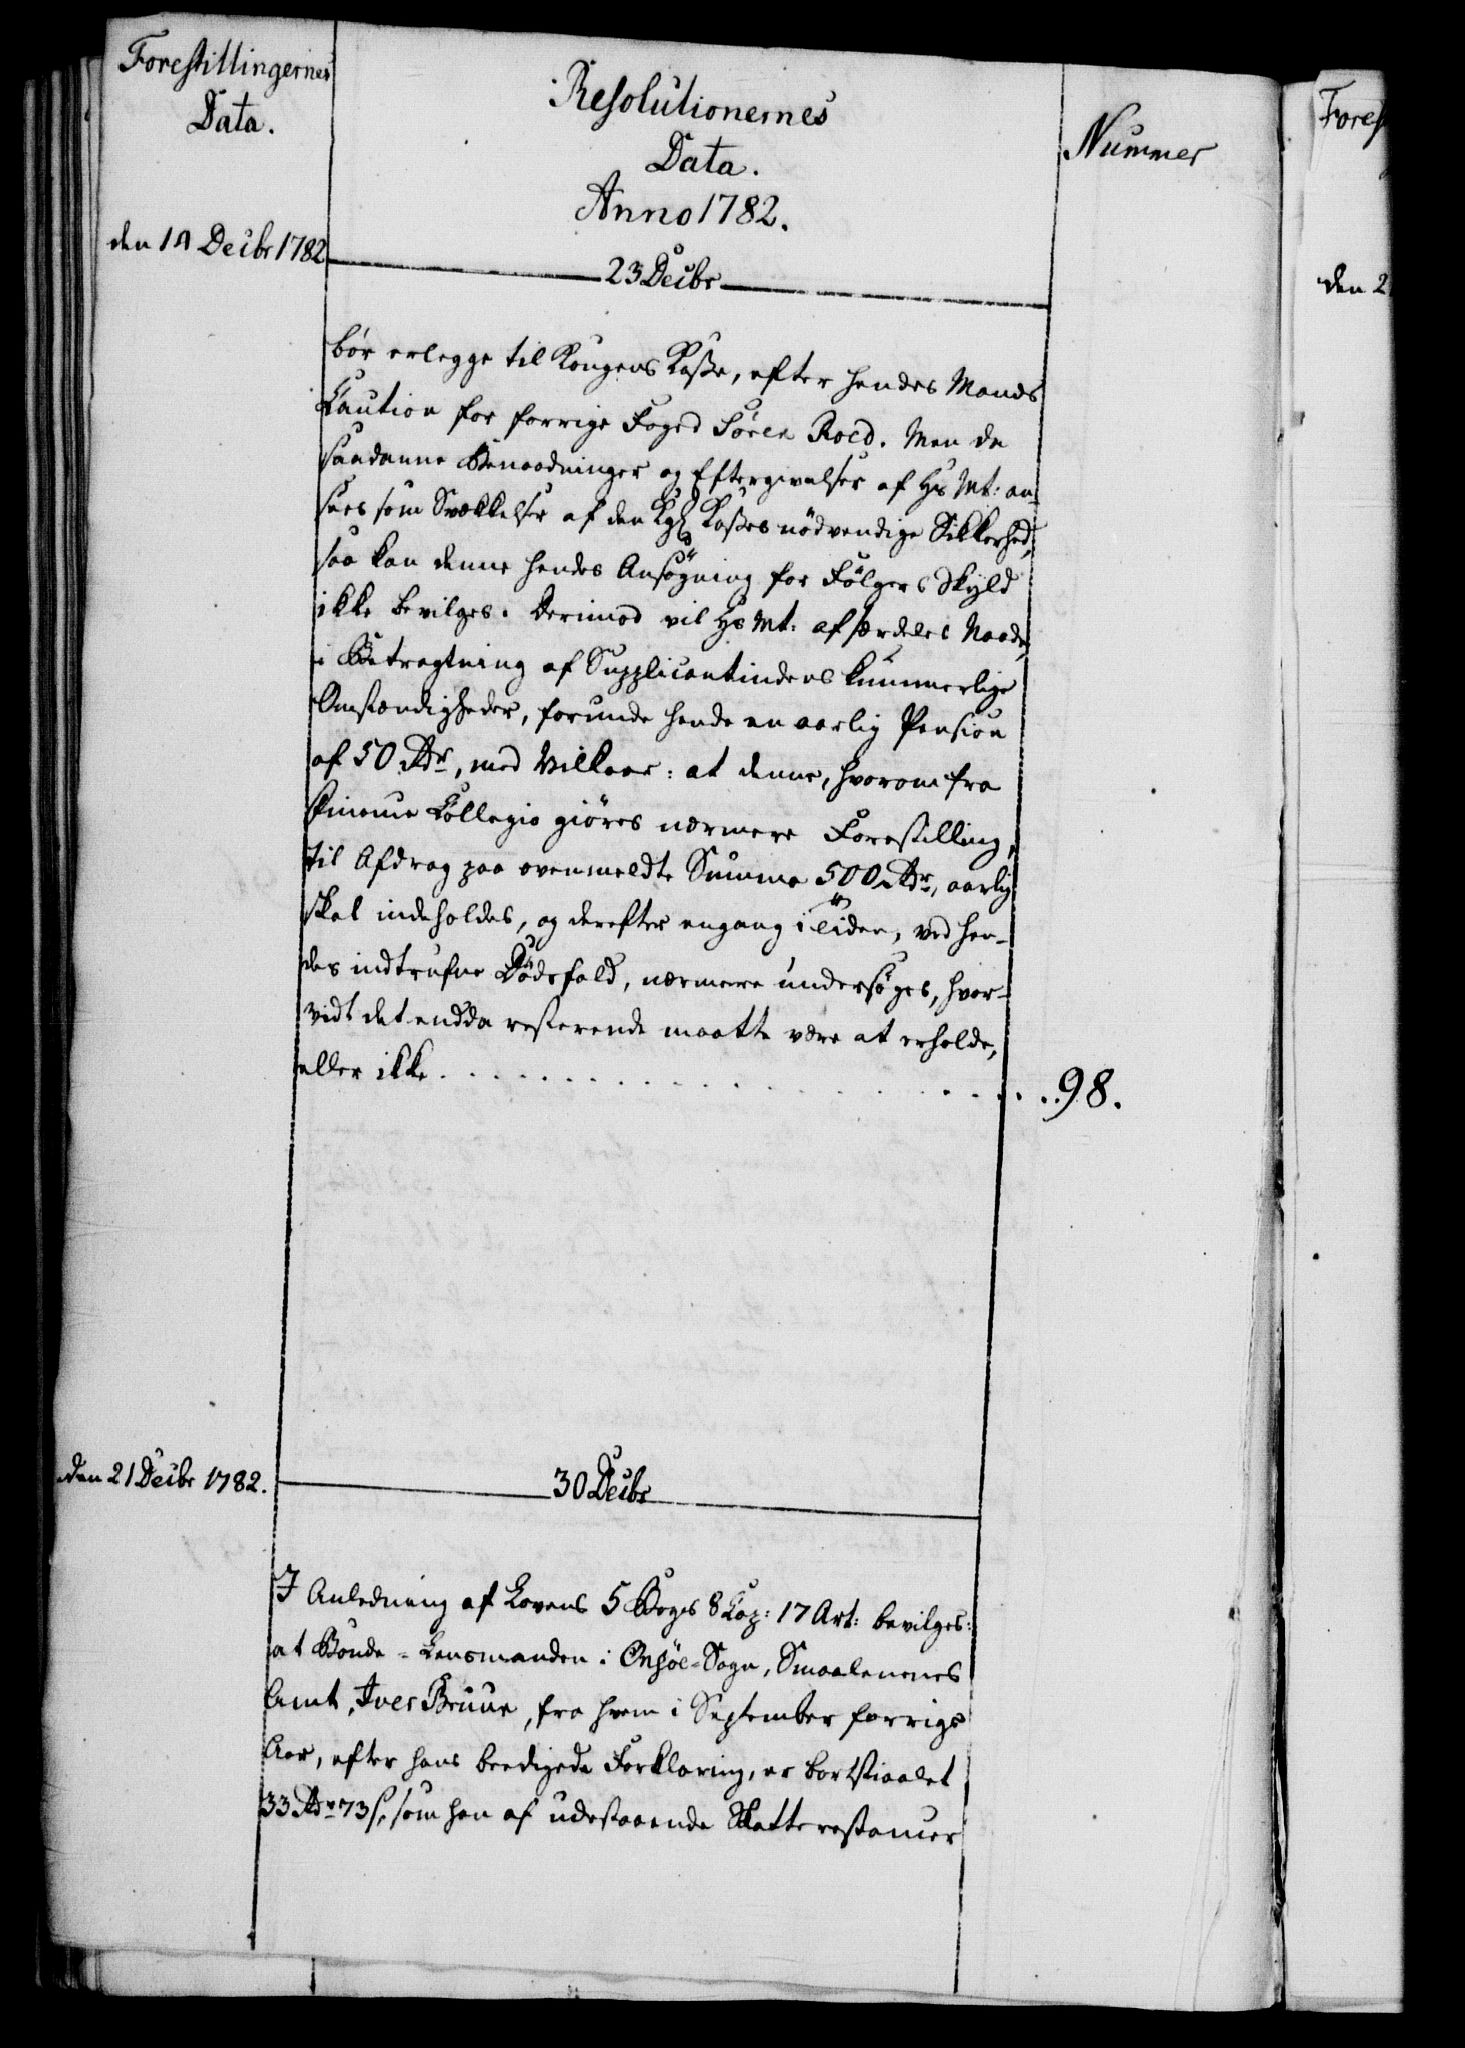 Forestillingernes
Data.
Resolutionernes
Data.
Anno 1782.
Nummer
den 14 Decbr 1782
23 Decbr
bör erlegge til Kongens Kasse, efter hendes Mands
Caution for forrige Foged Sören Roed. Men da
saadanne Benaadninger og Eftergivelser af Hs Mt: an-
sees som Svækkelser af den Kgl Kasses nödvendige Sikkerhed,
saa kan denne hendes Ansögning for Fölgers Skyld
ikke bevilges. Derimod vil Hs Mt: af særdeles Naade,
i Betragtning af Supplicantindens kummerlige
Omstændigheder, forunde hende en aarlig Pension
af 50 Rdr, med Vilkaar: at denne, hvorom fra
Finance Collegio giöres nærmere Forestilling,
til Afdrag paa ovenmeldte Summa 500 Rdr, aarlig
skal indeholdes, og derefter engang i Tiden, ved hen-
des indtrufne Dödsfald, nærmere undersöges, hvor-
vidt det endda resterende maatte være at erholde,
eller ikke . . . . . . . . . . . . . . . . 98.
den 21 Decbr 1782.
30 Decbr
I Anledning af Lovens 5 Bogs 8 Cap: 17 Art: bevilges:
at Bonde-Lensmanden i Onsöe-Sogn, Smaalenenes
Amt, Iver Bruun, fra hvem i September forrige
Aar, efter hans beedigede Forklaring, er bortstiaalet
33 Rdr 73 s, som han af udestaaende Skatterestancer
Fores
den 2